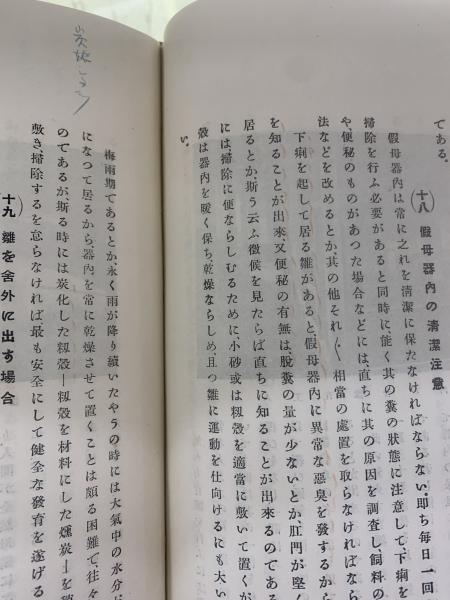 である。
(十八) 假母器内の清潔注意
假母器内は常に之れを清潔に保たなければならない。即ち毎日一回
掃除を行ふ必要があると同時に、能く其の糞の狀態に注意して、下痢を
や、便秘のものがあつた場合などには、直ちに其の原因を調査し、飼料の
法などを改めるとか、其の他それ〲相當の處置を取らなければなら
下痢を起して居る雛があると、假母器内に異常な惡臭を發するから
を知ることが出來、又便秘の有無は、脫糞の量が少ないとか、肛門が堅く
居るとか、斯う云ふ徵候を見たらば直ちに知ることが出來るのである
には、掃除に便ならしむるために小砂或は籾殼を適當に敷いて置くが
殼は器内を暖く保ち、乾燥ならしめ、且つ雛に運動を仕向けるにも大い
い。
梅雨期であるとか、永く雨が降り續いたやうの時には大氣中の水分が
になつて居るから、器内を常に乾燥させて置くことは頗る困難で、往々
のであるが、斯る時には炭化した籾殼―籾殼を材料にした燻炭―を
敷き、掃除するを怠らなければ最も安全にして健全な發育を遂げる
(十九) 雛を舍外に出す場合